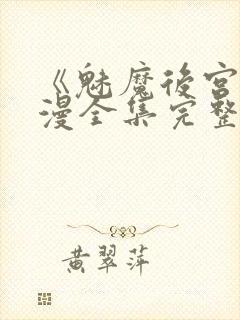 《魅魔後宮
漫全集完整
黄翠萍